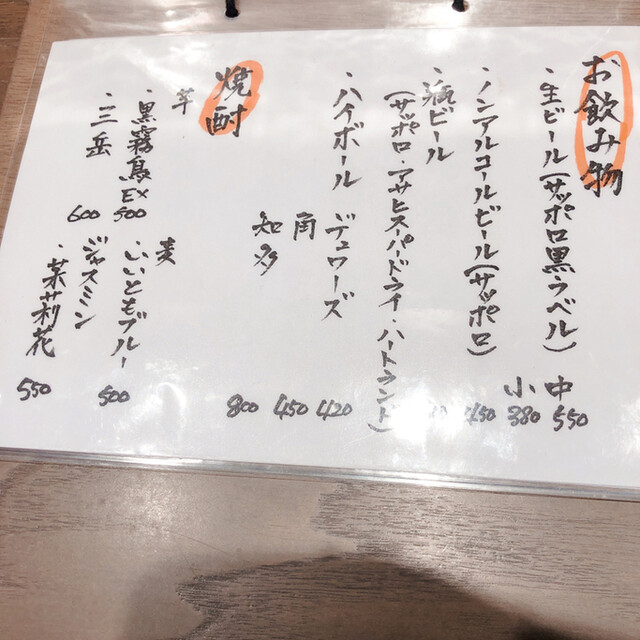 お飲み物
・生ビール(サッポロ黒ラベル) 中 550
小 380
・ノンアルコールビール(サッポロ) 450
・瓶ビール
(サッポロ・アサヒスーパードライ・ハートランド)
・ハイボール デュワーズ 420
角 450
知多 800
焼酎
芋
・黒霧島EX 500
・三岳 600
麦
・いいともブルー 500
ジャスミン
・茉莉花 550